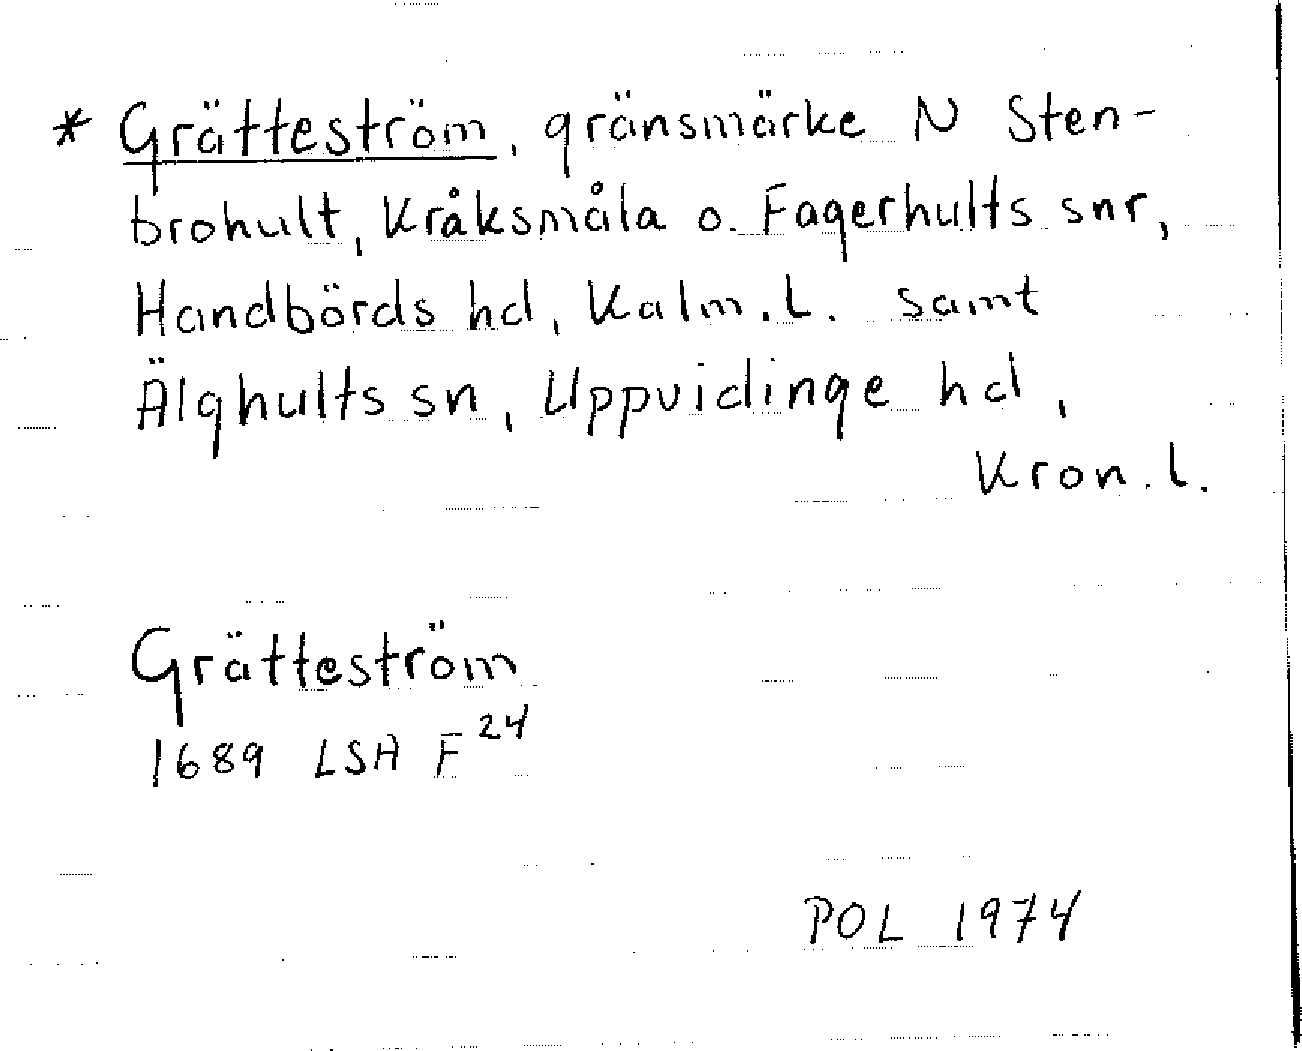 * Grätteström, gränsmärke N Sten-
brohult, Kråksmåla o. Fagerhults snr,
Handbörds hd, Kalm. L. samt
Älghults sn, Uppvidinge hd,
Kron. L.
Grätteström
1689 LSA F 24
POL 1974